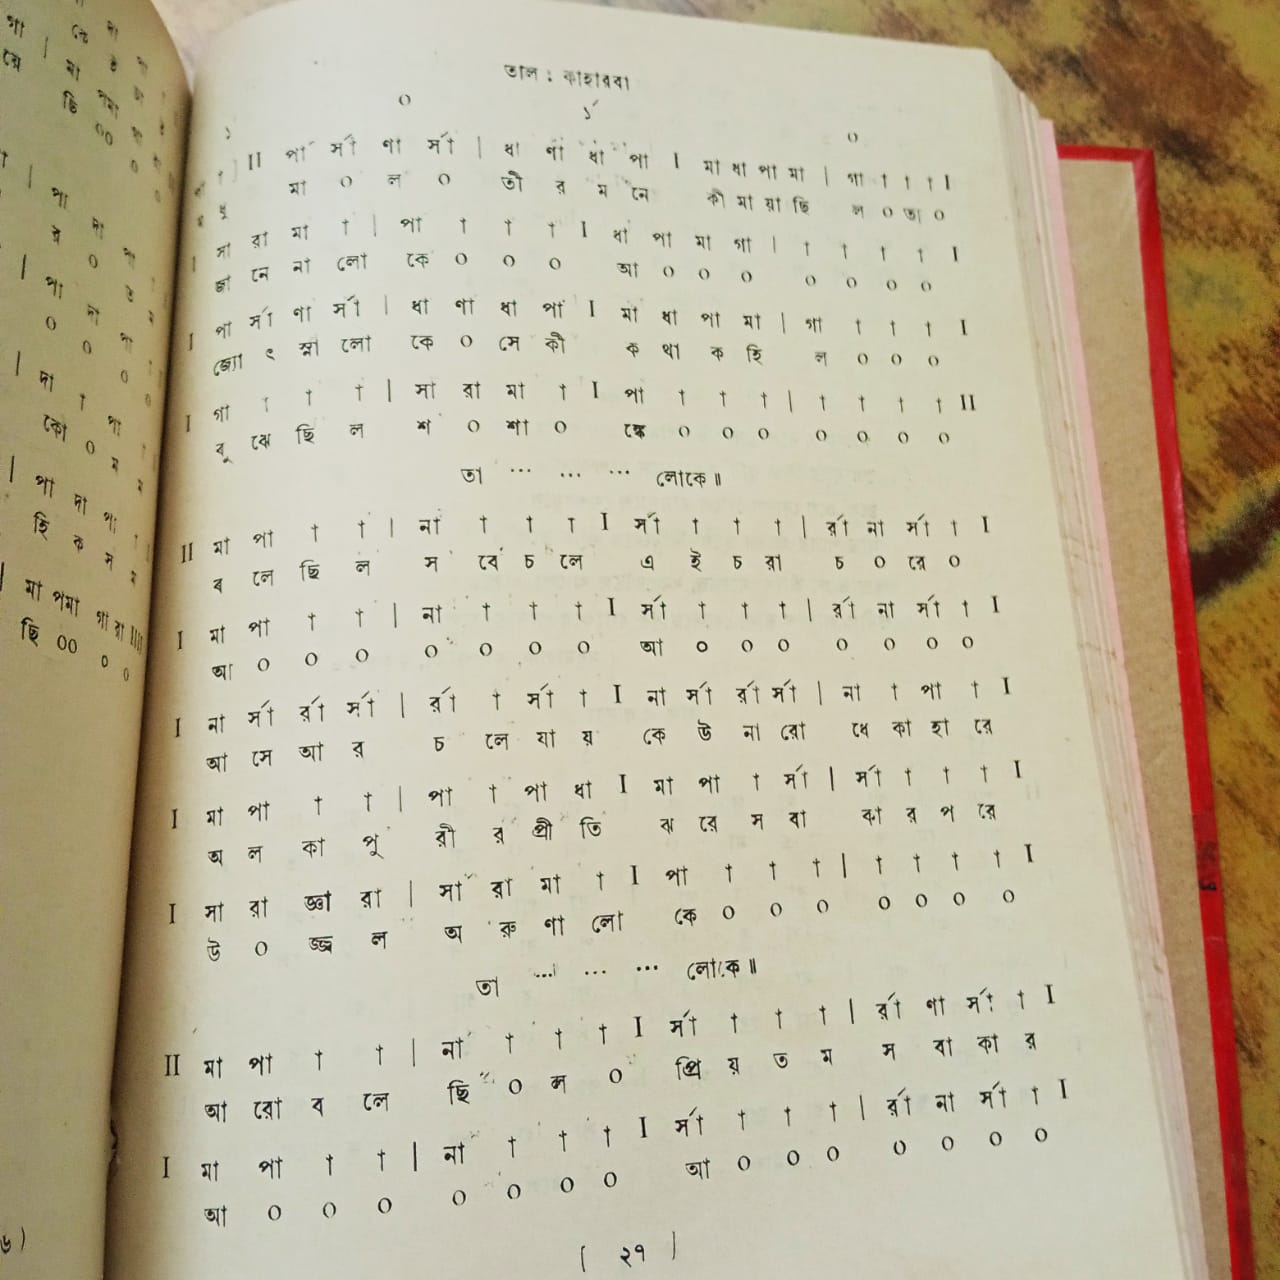 তাল : কাহারবা
০ ১´ ০
II পা র্সা ণা র্সা | ধা ণা ধা পা I মা ধা পা মা | গা † † † I
মা ০ ল ০ তী র ম নে কী মা য়া ছি ল ০ তা ০
I সা রা মা † | পা † † † I ধা পা মা গা | † † † † I
জা নে না লো কে ০ ০ ০ আ ০ ০ ০ ০ ০ ০ ০
I পা র্সা ণা র্সা | ধা ণা ধা পা I মা ধা পা মা | গা † † † I
জ্যো ৎ স্না লো কে ০ সে কী ক থা ক হি ল ০ ০ ০
I গা † † † | সা রা মা † I পা † † † | † † † † II
বু ঝে ছি ল শ ০ শা ০ ঙ্কে ০ ০ ০ ০ ০ ০ ০
তা ... ... ... লোকে॥
II মা পা † † | না † † † I র্সা † † † | র্রা না র্সা † I
ব লে ছি ল স বে চ লে এ ই চ রা চ ০ রে ০
I মা পা † † | না † † † I র্সা † † † | র্রা না র্সা † I
আ ০ ০ ০ ০ ০ ০ ০ আ ০ ০ ০ ০ ০ ০ ০
I না র্সা র্রা র্সা | র্রা † র্সা † I না র্সা র্রা র্সা | না † পা † I
আ সে আ র চ লে যা য় কে উ না রো ধে কা হা রে
I মা পা † † | পা † পা ধা I মা পা † র্সা | র্সা † † † I
অ ল কা পু রী র প্রী তি ঝ রে স বা কা র প রে
I সা রা জ্ঞা রা | সা রা মা † I পা † † † | † † † † I
উ ০ জ্জ্ব ল অ রু ণা লো কে ০ ০ ০ ০ ০ ০ ০
তা ... ... ... লোকে॥
II মা পা † † | না † † † I র্সা † † † | র্রা ণা র্সা † I
আ রো ব লে ছি ০ ল ০ প্রি য় ত ম স বা কা র
I মা পা † † | না † † † I র্সা † † † | র্রা না র্সা † I
আ ০ ০ ০ ০ ০ ০ ০ আ ০ ০ ০ ০ ০ ০ ০
( ২৭ )